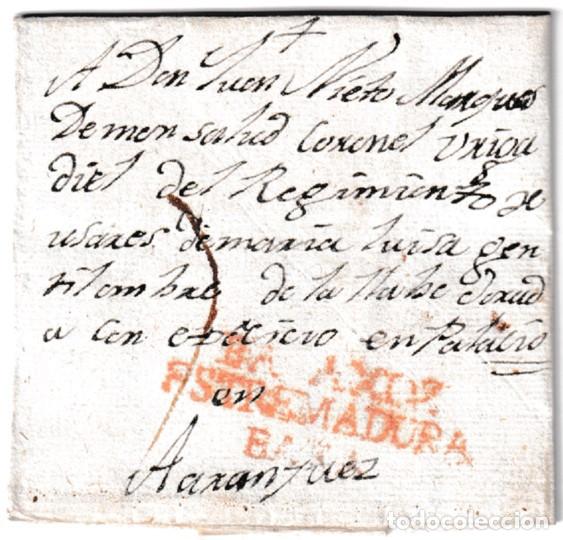 A Don Juan Nieto Marques
Demonsalud Coronel Vriga
diel del Regimiento de
usares demaria luisa gen
tilombre de la llabe dorad
a con exercicio en Palacio
en
Aaranjuez
ESTREMADURA
todocoleccion